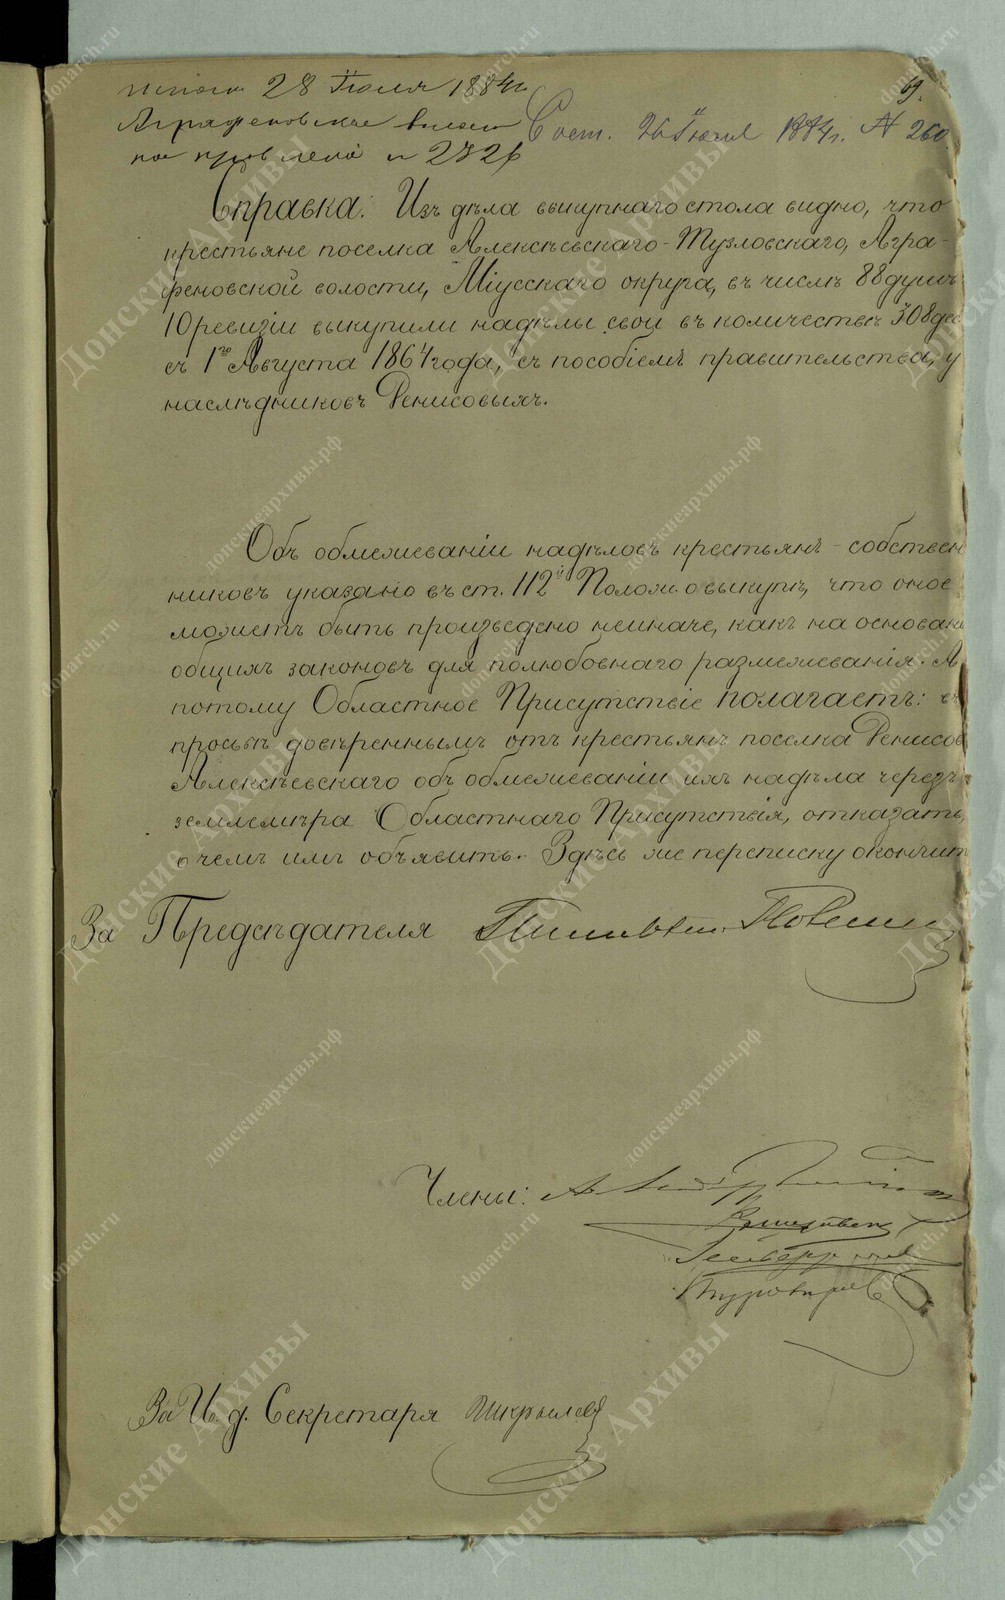 28 Июля 1884г.
9.
Аграфеновское
Сост. 26 Июля 1884г. № 260.
№ 2726
Справка: Изъ дѣла выкупнаго стола видно, что
крестьяне поселка Алексѣевскаго-Тузловскаго, Агра-
феновской волости, Міусскаго округа, въ числѣ 88 душъ
10 ревизіи выкупили надѣлы свои въ количествѣ 308 дес
съ 1го Августа 1864 года, съ пособіемъ правительства, у
наслѣдниковъ Денисовыхъ.
Объ обмежеваніи надѣловъ крестьянъ-собствен
никовъ указано въ ст. 112й Полож. о выкупѣ, что оное
можетъ быть произведено неиначе, какъ на основан
общихъ законовъ для полюбовнаго размежеванія. А
потому Областное Присутствіе полагаетъ: въ
просьбѣ довѣреннымъ отъ крестьянъ поселка Денисов
Алексѣевскаго объ обмежеваніи ихъ надѣла черезъ
землемѣра Областнаго Присутствія, отказать,
о чемъ имъ объявить. Здѣсь же переписку окончит
За Предсѣдателя
Члены:
За И. д. Секретаря
Донские Архивы
donarch.ru
донскиеархивы.рф